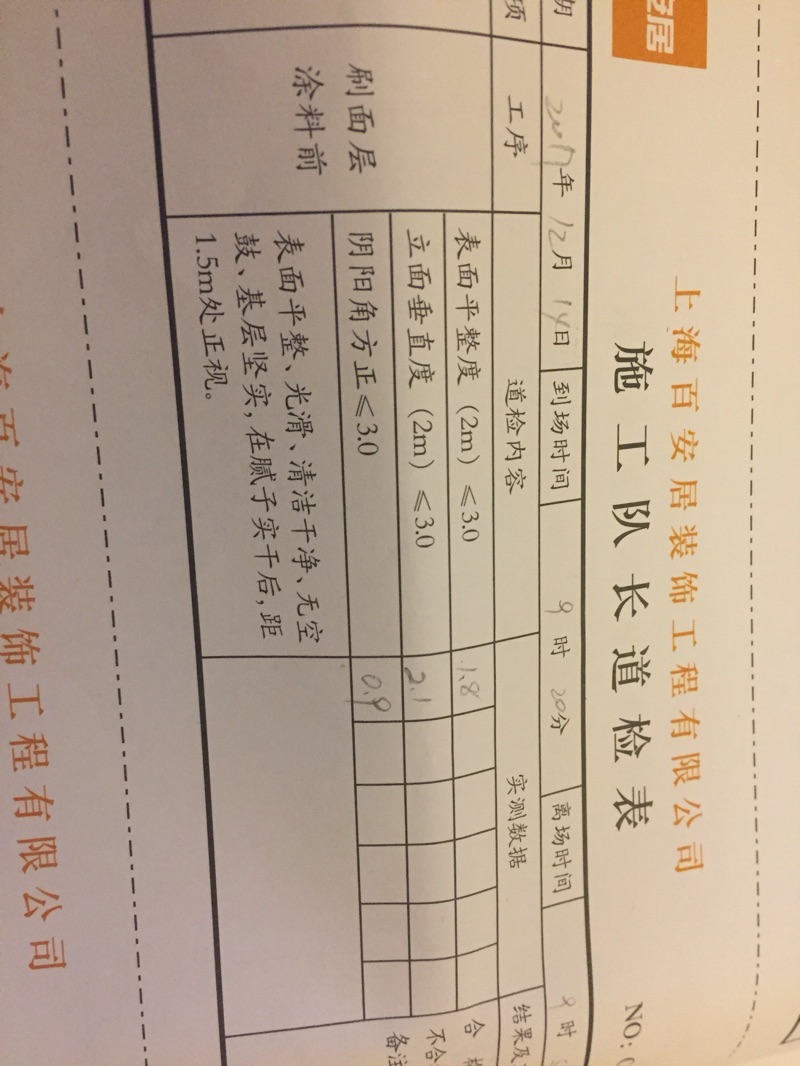 安居
上海百安居装饰工程有限公司
施工队长道检表
NO:
期 2017年12月14日 到场时间 9时20分 离场时间 9时
项 工序 道检内容 实测数据 结果及
刷面层
涂料前
表面平整度（2m）≤3.0 1.8
立面垂直度（2m）≤3.0 2.1
阴阳角方正≤3.0 0.9
表面平整、光滑、清洁干净、无空
鼓、基层坚实，在腻子实干后，距
1.5m处正视。
合
不合
备注
海百安居装饰工程有限公司